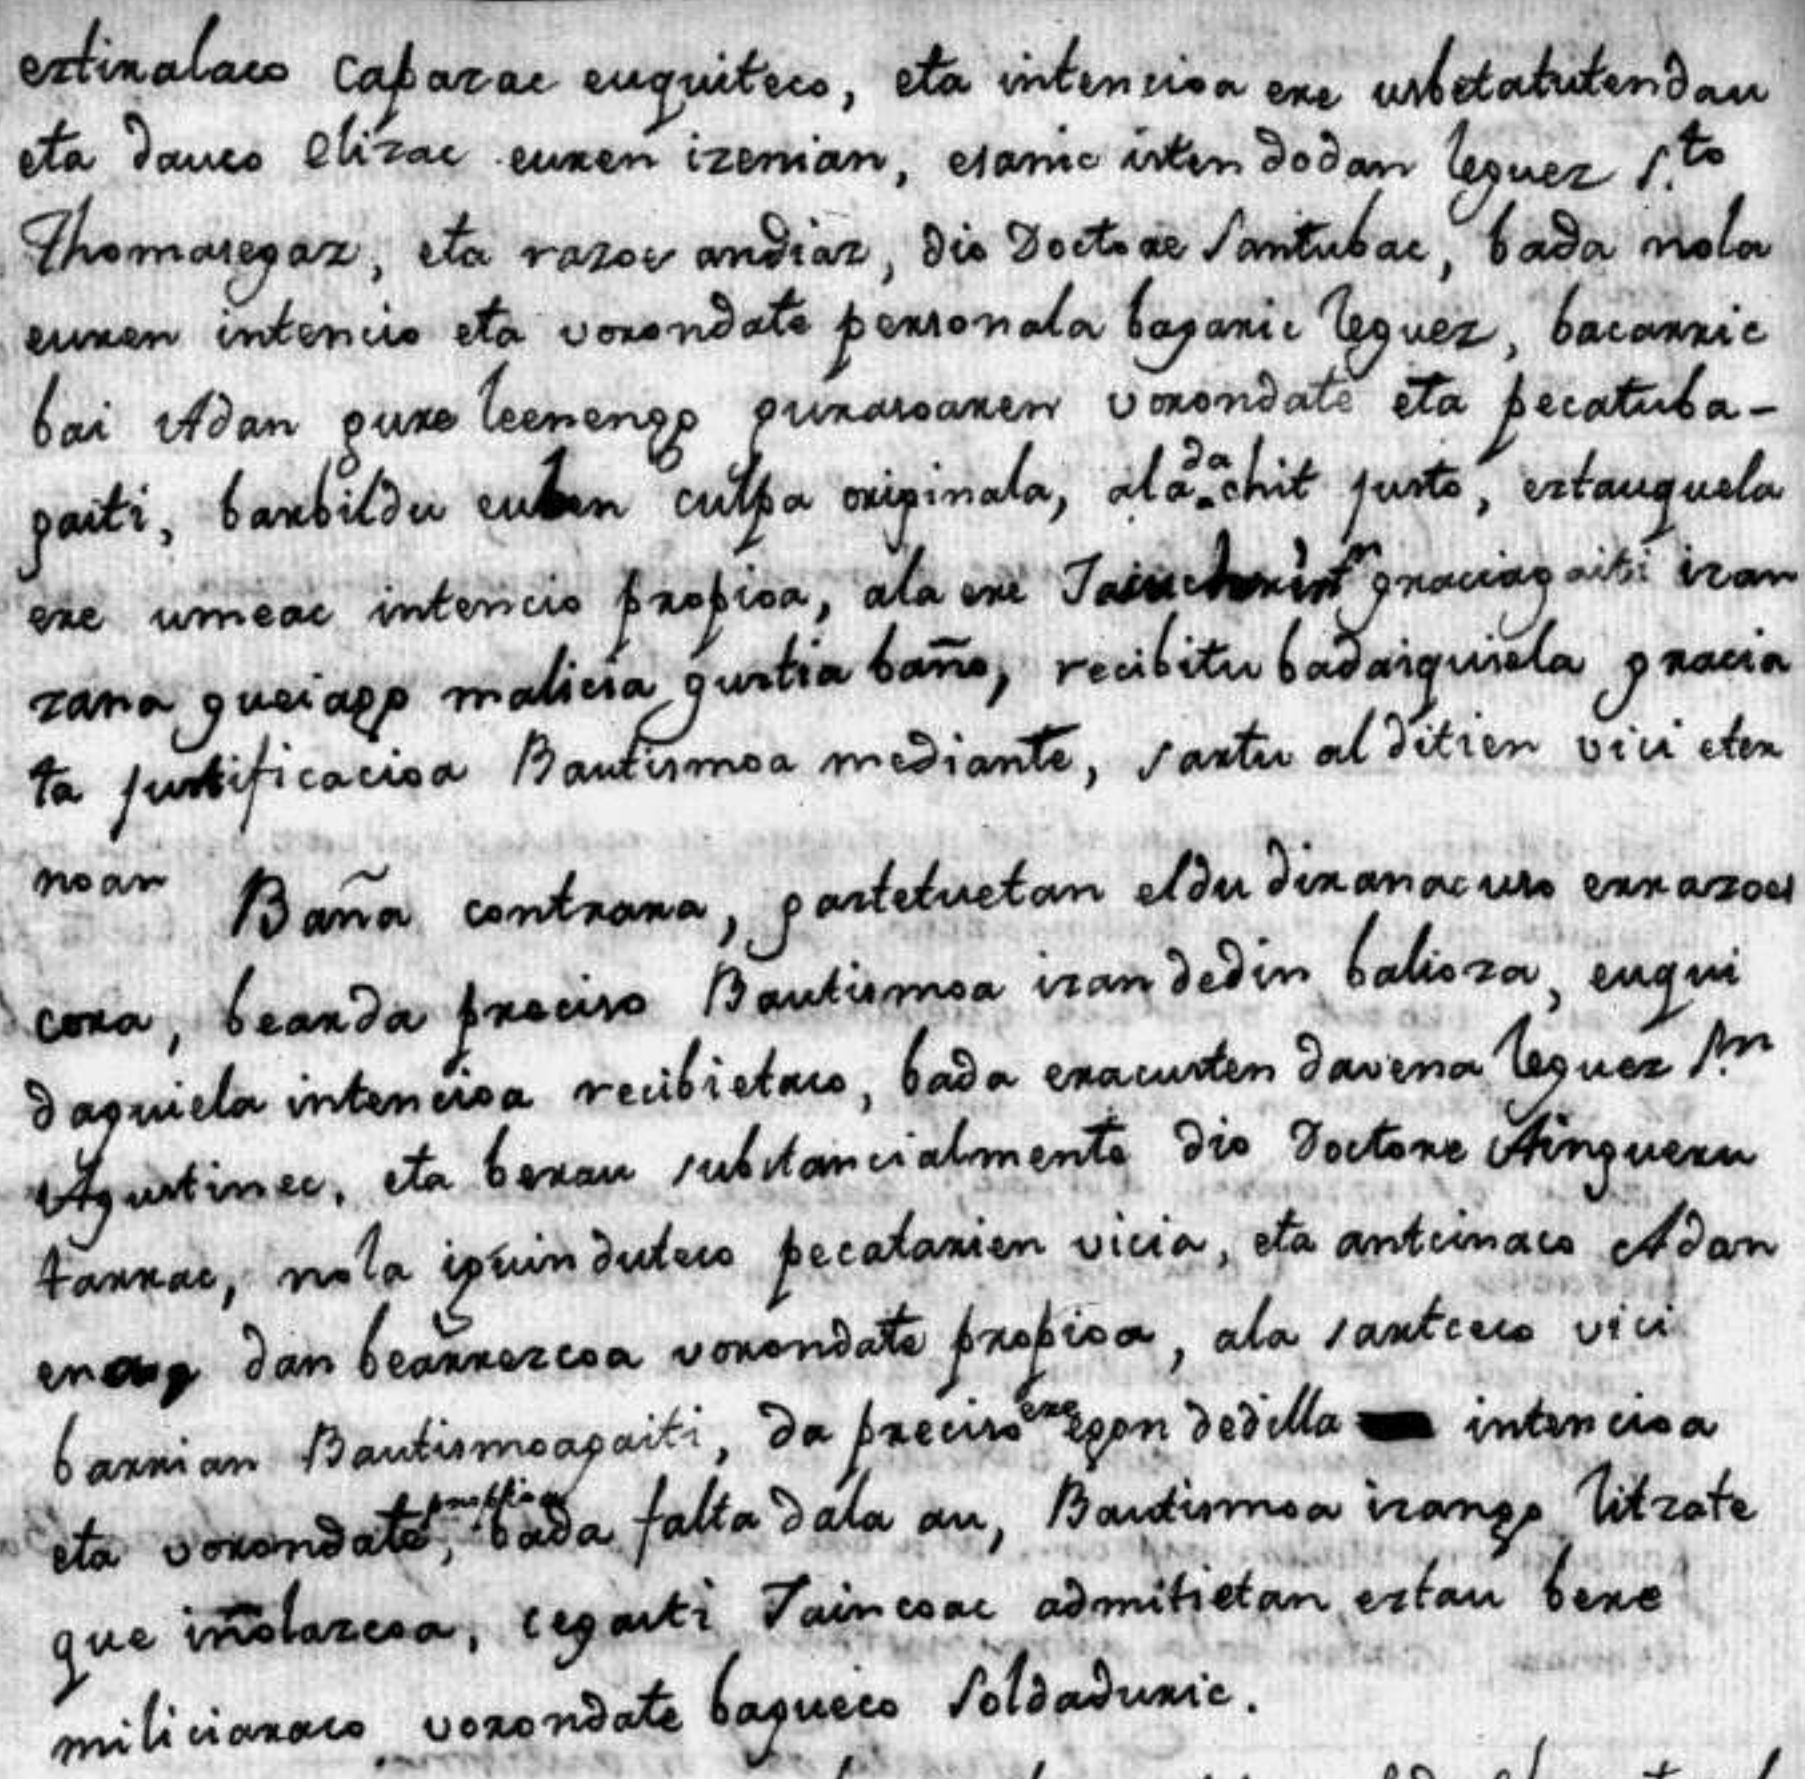 eztiralaco caparac euquiteco, eta intencioa ere usbetatutendau
eta dauco Elizac euren izenian, esanic isten dodan leguez S.to
Thomasegaz, eta razoe andiaz, dio Doctore Santubac, bada nola
euren intencio eta vorondate personala bagaric leguez, bacarric
bai Adan gure leenengo gurasoaren vorondate eta pecatuba-
gaiti, barbildu euben culpa originala, ala da chit justo, eztauquela
ere umeac intencio propioa, ala ere graciagaiti izan
zana gueiago malicia guztia baño, recibitu badaiquiela gracia
ta justificacioa Bautismoa mediante, sartu al ditien vici eter
noan
Baña contrara, gaztetuetan eldu diranac uso errazoe
cora, bearda preciso Bautismoa izan dedin baliora, euqui
daquiela intencioa recibietaco, bada eracusten davena leguez S.n
Agustinec, eta berau substancialmente dio Doctore Aingueru
tarrac, nola iguinduteco pecatarien vicia, eta anteinaco Adan
enag dan bearrezcoa vorondate propioa, ala sarteeco vici
barrian Bautismoagaiti, da preciso ere egon dedilla intencioa
eta vorondate propioa, bada falta dala au, Bautismoa izango litzate
que iñolazcoa, cegaiti Jaincoac admitietan eztau bere
miliciaraco vorondate bagueco Soldaduric.